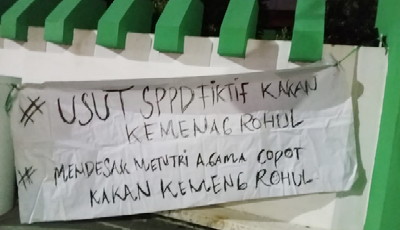 # USUT SPPD FIKTIF KAKAN
KEMENAG ROHUL
# MENDESAK METUTRI AGAMA COPOT
KAKAN KEMENG ROHUL